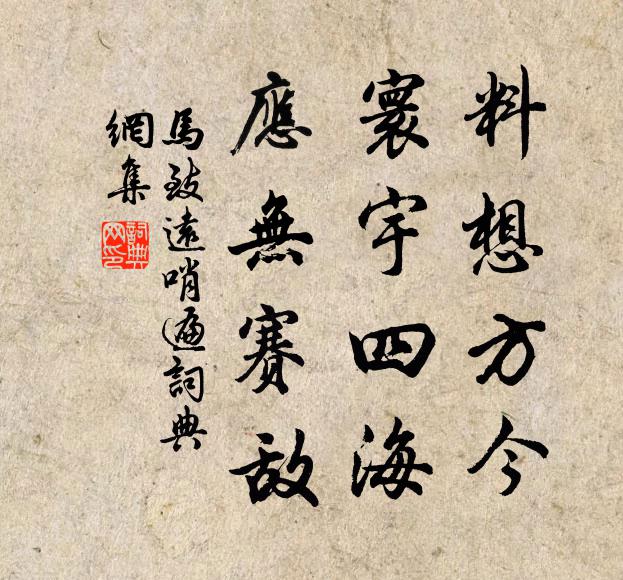 料想方今
寰宇四海
應無賽敌
馬致遠哨遍詞典
網集
詞典
网印